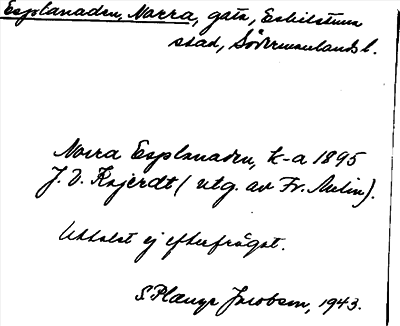 Esplanaden, Norra, gata, Eskilstuna
stad, Södermanlands l.
Norra Esplanaden, k-a 1895
J. V. (utg. av Fr. Melin).
Uttalet ej efterfrågat.
S Jacobson, 1943.